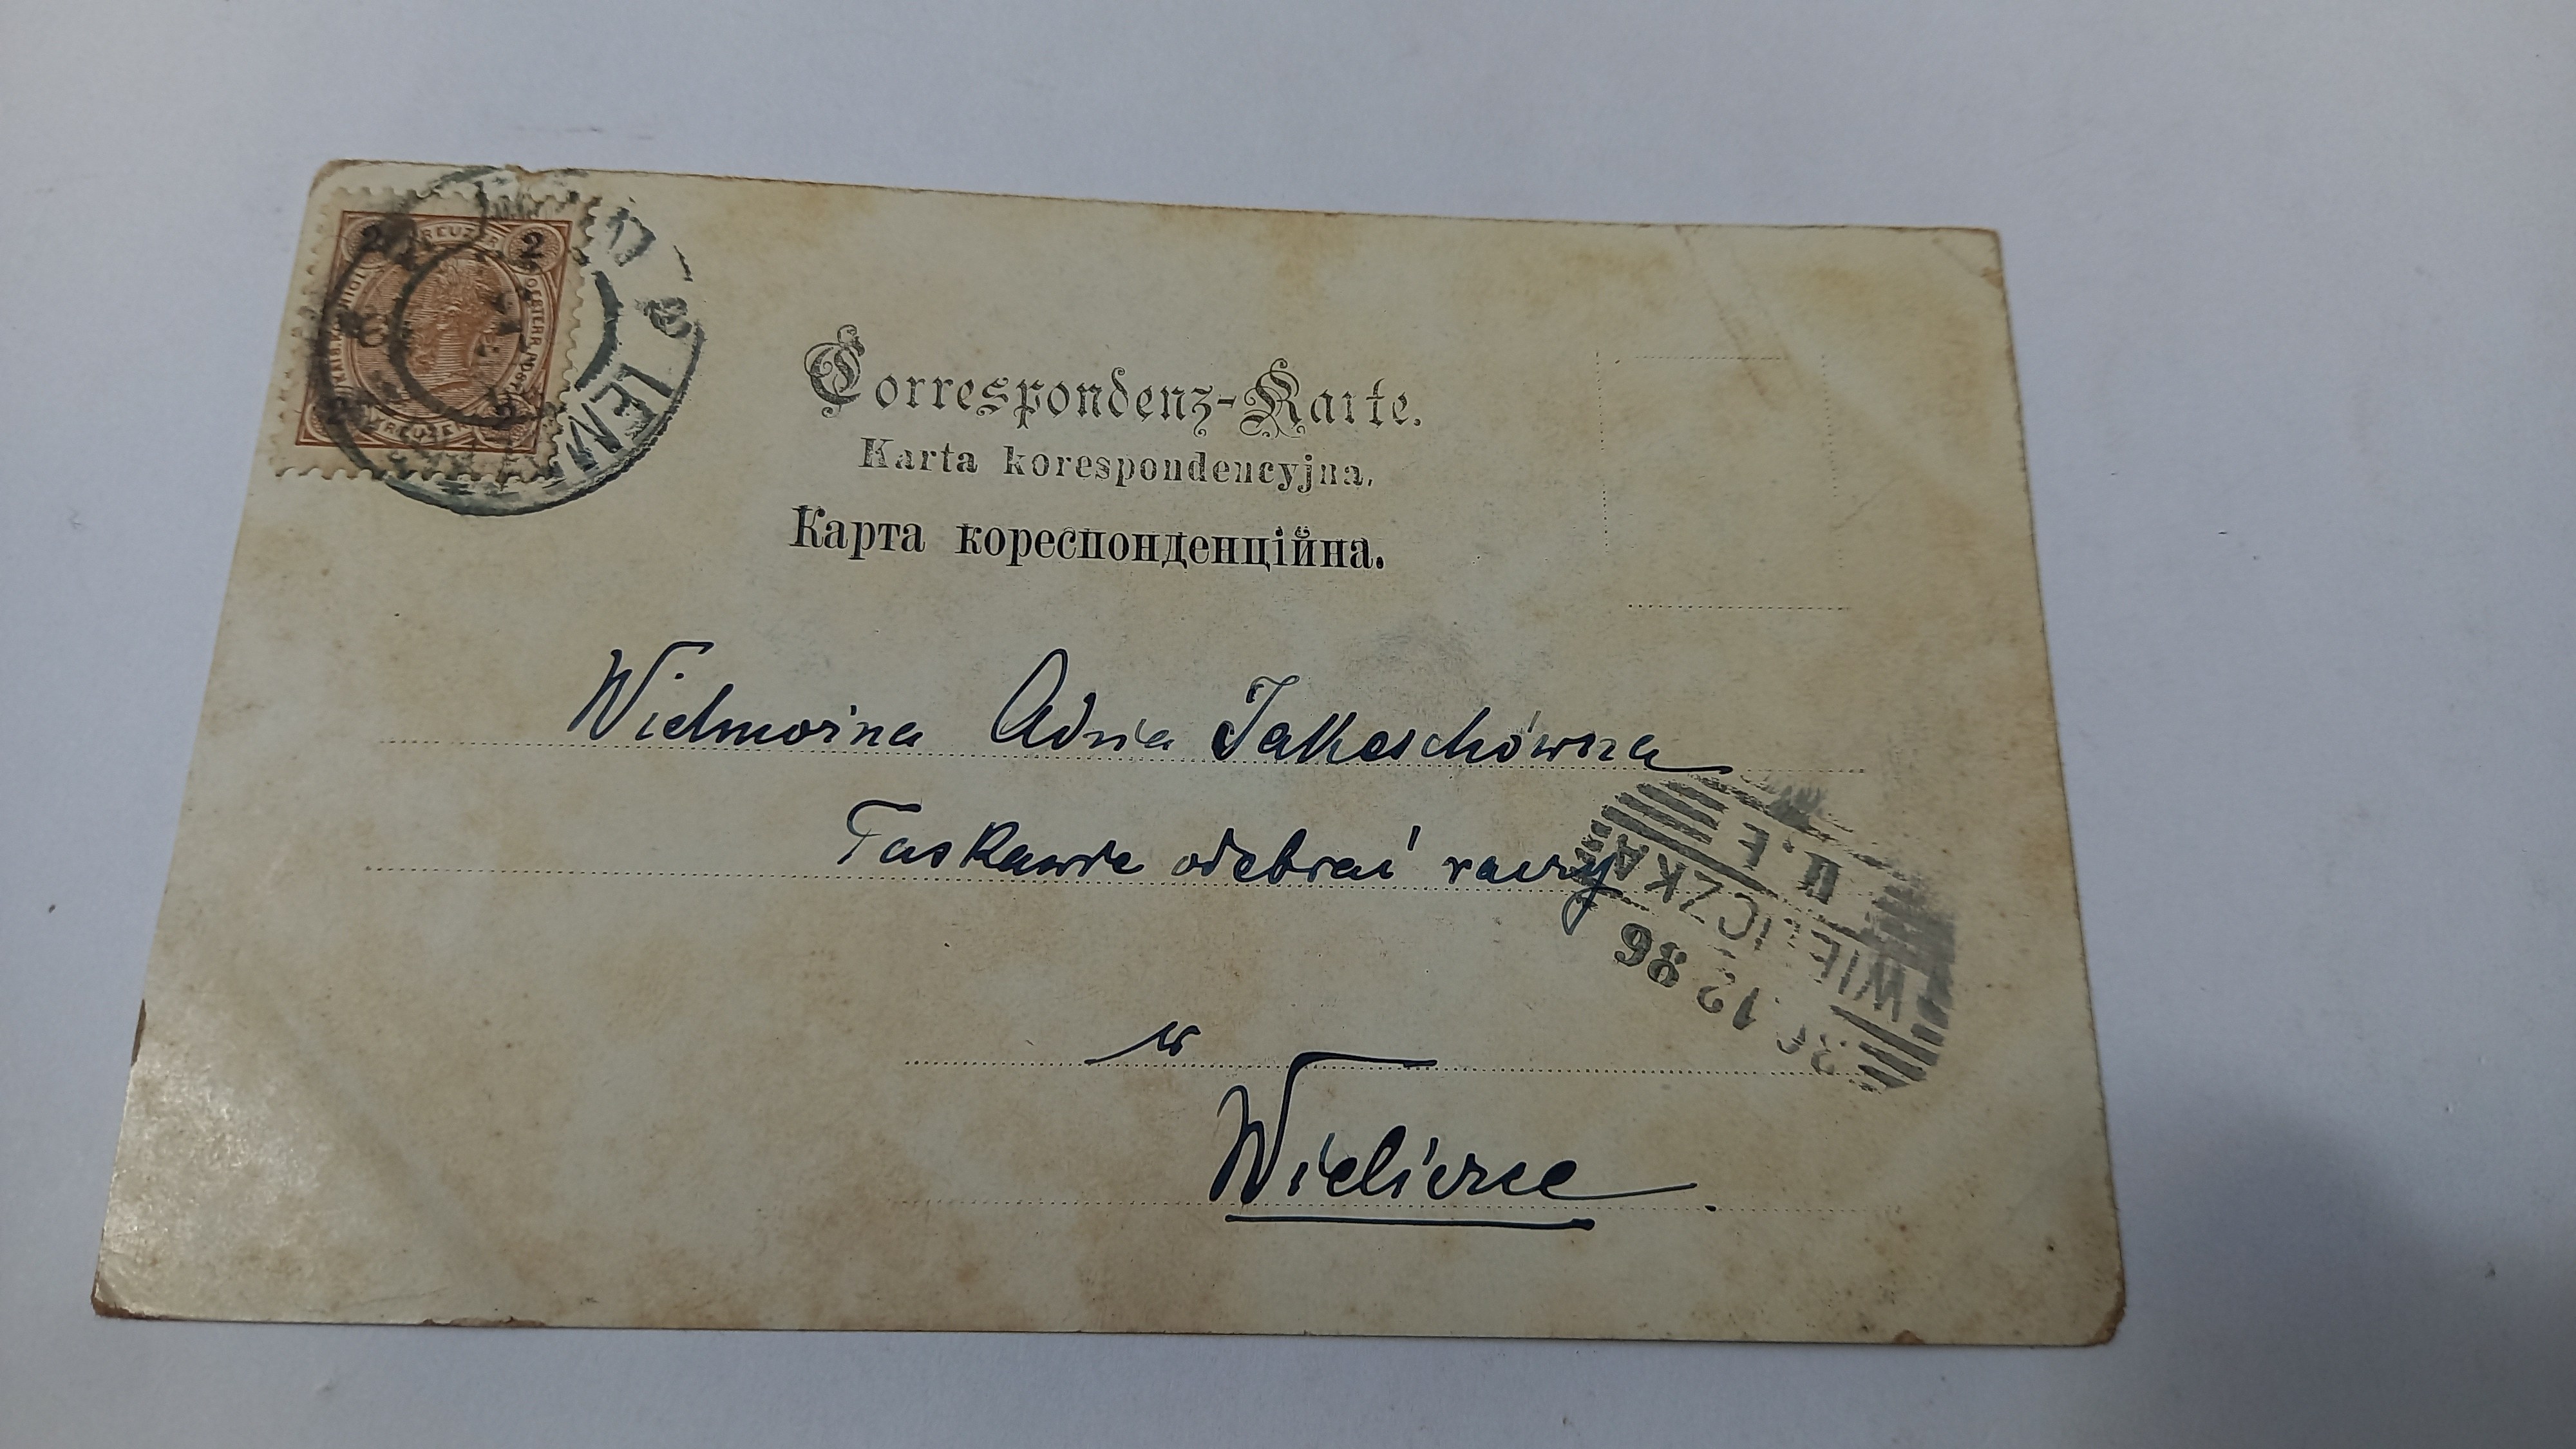 2 KREUZER 2
OESTERR. POST
KREUZER 2
LEM
Correspondenz-Karte.
Karta korespondencyjna.
Карта кореспонденційна.
Wielmożna Adzia Jakeschówna
Łaskawie odebrać raczy
w
Wieliczce.
WIELICZKA
12 86